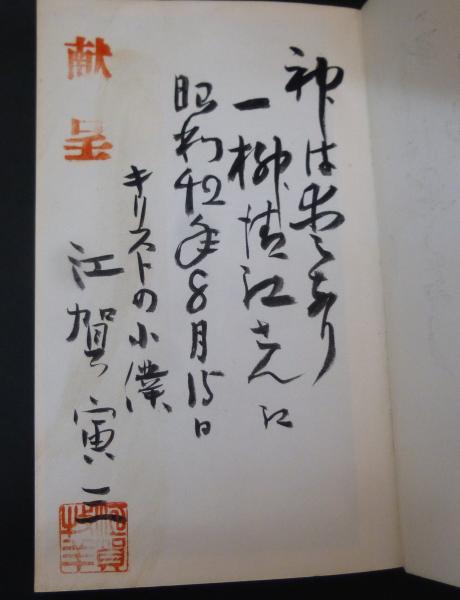 神は愛なり
一柳清江さん江
昭和42年8月15日
キリストの小僕
江賀寅三
献呈